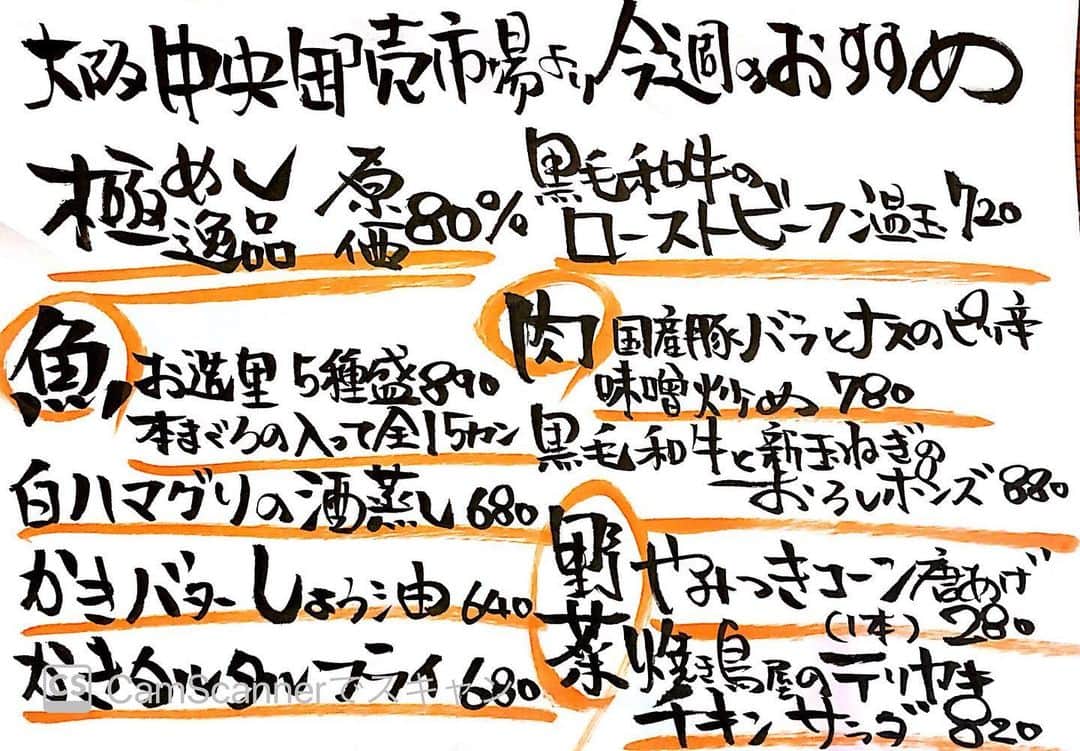 大阪中央卸売市場より今週のおすすめ
極めし逸品 原価80%
黒毛和牛の
ローストビーフ温玉720
魚
お造里5種盛890
本まぐろの入って全15カン
白ハマグリの酒蒸し680
かきバターしょう油640
かきタルタルフライ680
肉
国産豚バラとナスのピリ辛
味噌炒め780
黒毛和牛と新玉ねぎの
おろしポンズ880
野菜
やみつきコーン唐あげ
(1本)280
焼き鳥屋のテリヤキ
チキンサラダ820
CS CamScannerでスキャン